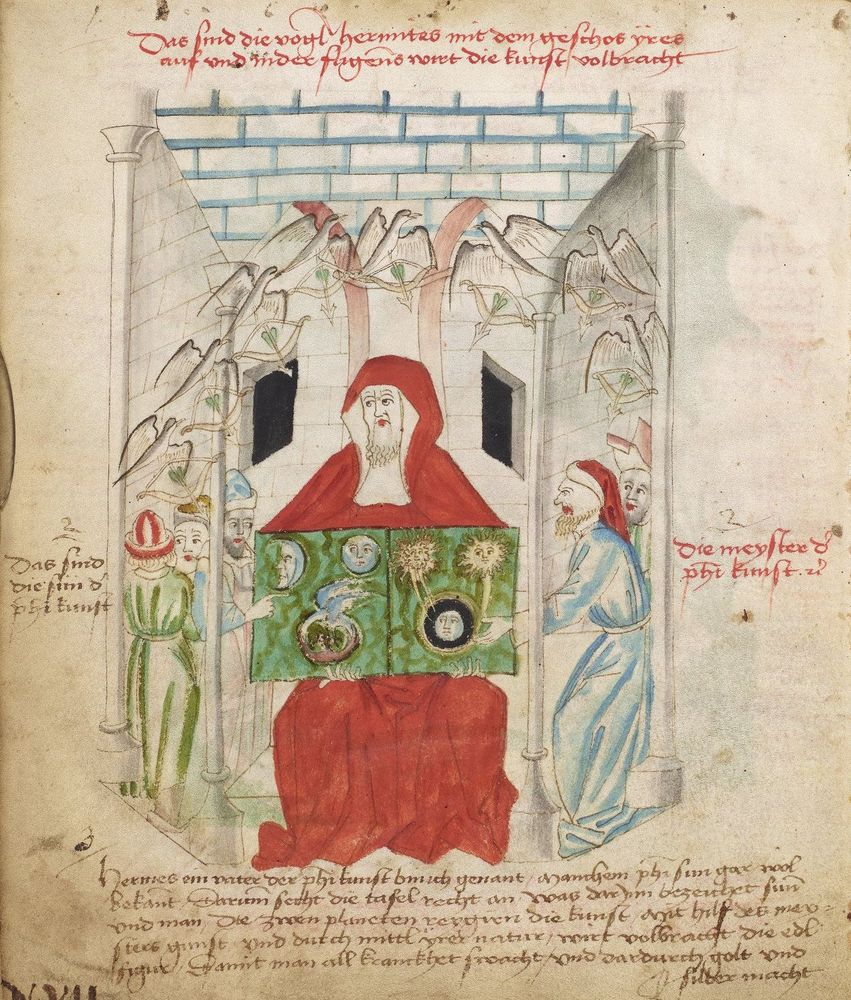 Das sind die vogl hermites mit dem geschos yres
auf und nider fligens wirt die kunst volbracht
2
Das sind
die sun d
phi kunst
2
Die meyster d
phi kunst
3
Hermes ein vater der phi kunst bin ich genant / Manchem phi sun gar wol
bekant / Darum secht die tafel recht an / was dar Inn bezeichet sunn
und man / Die zwen planeten regirn die kunst / Mit hilf des mey-
sters gunst und durch mittl yrer natur / wirt volbracht die edl
figur / Damit man all kranckhet swacht / und dardurch golt und
silber macht